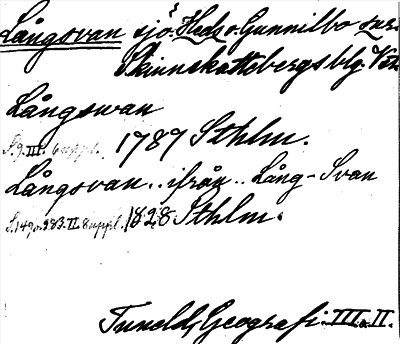 Långsvan sjö. Heds o. Gunnilbo snr.
Skinnskattebergs blg. Vstm.
Långswan
S. 9. III. 6 uppl. 1787 Sthlm.
Långsvan.. ifrån.. Lång-Svan
S. 149 o. 283. II. 8 uppl. 1828 Sthlm.
Tunelds, Geografi. III o. II.